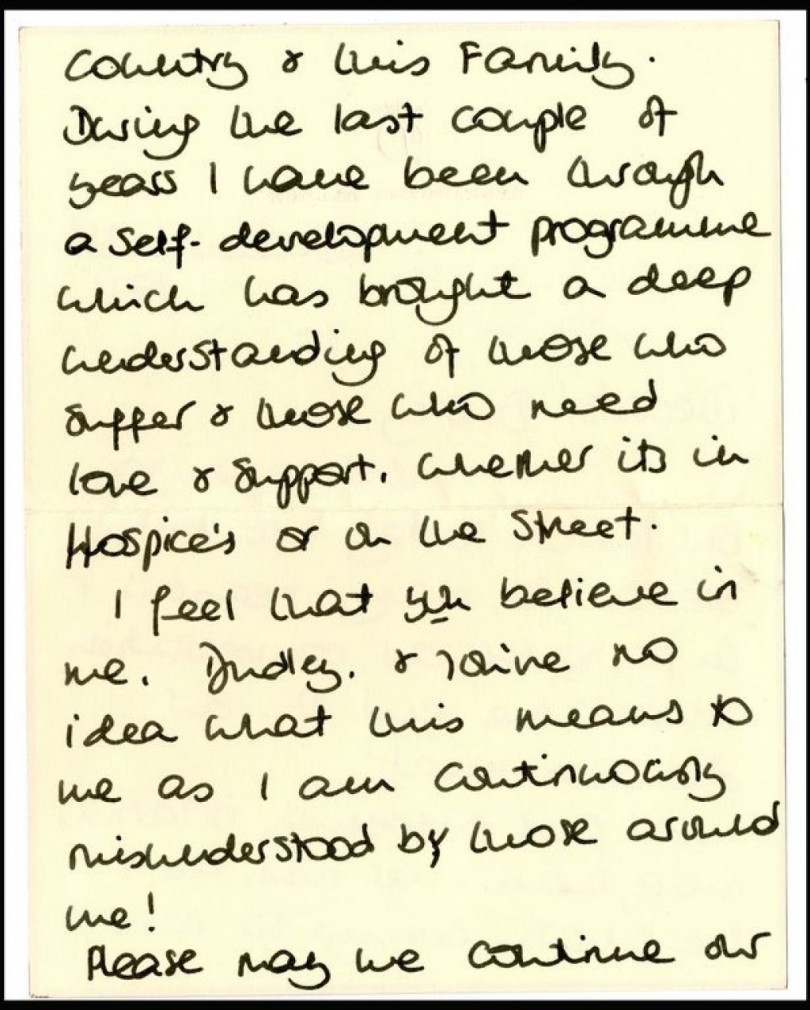 Country & this Family.
During the last couple of
years I have been through
a self-development programme
which has brought a deep
understanding of those who
suffer & those who need
love & support, whether its in
Hospice's or on the street.
I feel that you believe in
me. Dudley. & no
idea what this means to
me as I am continuously
misunderstood by those around
me!
Please may we continue our